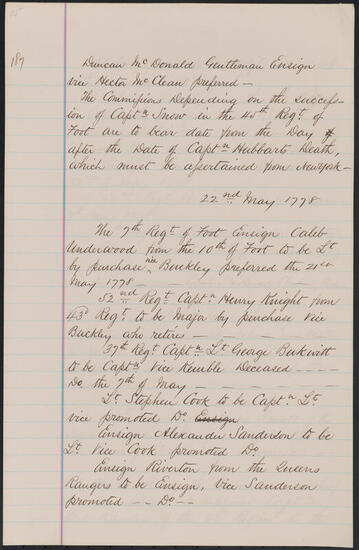 189
Duncan McDonald Gentleman Ensign
vice Hector McClean preferred —
The Commissions Depending on the success-
ion of Captn Snow in the 45th Regt of
Foot are to bear date from the Day
after the Date of Captn Hubbarts Death,
which must be assertained from New York —
22nd May 1778
The 7th Regt of Foot Ensign Caleb
Underwood from the 10th of Foot to be Lt
by purchase vice Buckley preferred the 21st
May 1778
52nd Regt Captn Henry Knight from
43d Regt to be Major by purchase Vice
Buckley who retires — — — —
37th Regt Captn Lt George
to be Captn Vice Kemble Deceased — — — —
Do the 7th of May — — — —
Lt Stephen Cook to be Captn Lt
vice promoted Do Ensign
Ensign Alexander Sanderson to be
Lt Vice Cook promoted Do
Ensign Riverton from the Queens
Rangers to be Ensign, vice Sanderson
promoted — — Do — —